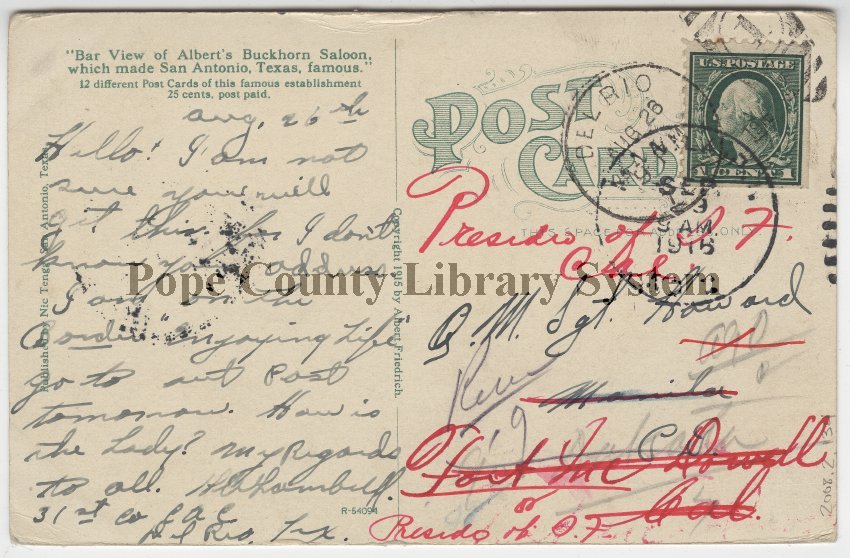 "Bar View of Albert's Buckhorn Saloon,
which made San Antonio, Texas, famous."
12 different Post Cards of this famous establishment
25 cents, post paid.
Aug, 26th
Hello! I am not
sure you will
get this for I don't
know your address
I am on the
Border enjoying life
go to out Post
tomorrow. How is
the Lady? My Regards
to all.
31st Co C A C
Del Rio, Tex.
Published by Nic Tengg, San Antonio, Texas
Copyright 1915 by Albert Friedrich.
R-54094
POST CARD
THIS SPACE
DEL RIO
AUG 28
SEP
9 AM
1916
U.S. POSTAGE
1 CENT 1
Presidio of S. F.
Cal.
Q. M. Sgt. Howard
Manila
P. I.
Fort Mc Dowell
or Cal.
Presidio of S. F.
Pope County Library System
2008.2.13